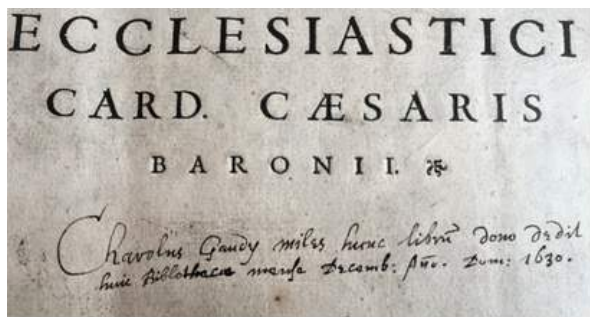 ECCLESIASTICI
CARD. CÆSARIS
BARONII.
Charolus Gaudy miles hunc librū dono dedit
huic Bibliothecæ mense Decemb: Año. Dom: 1630.